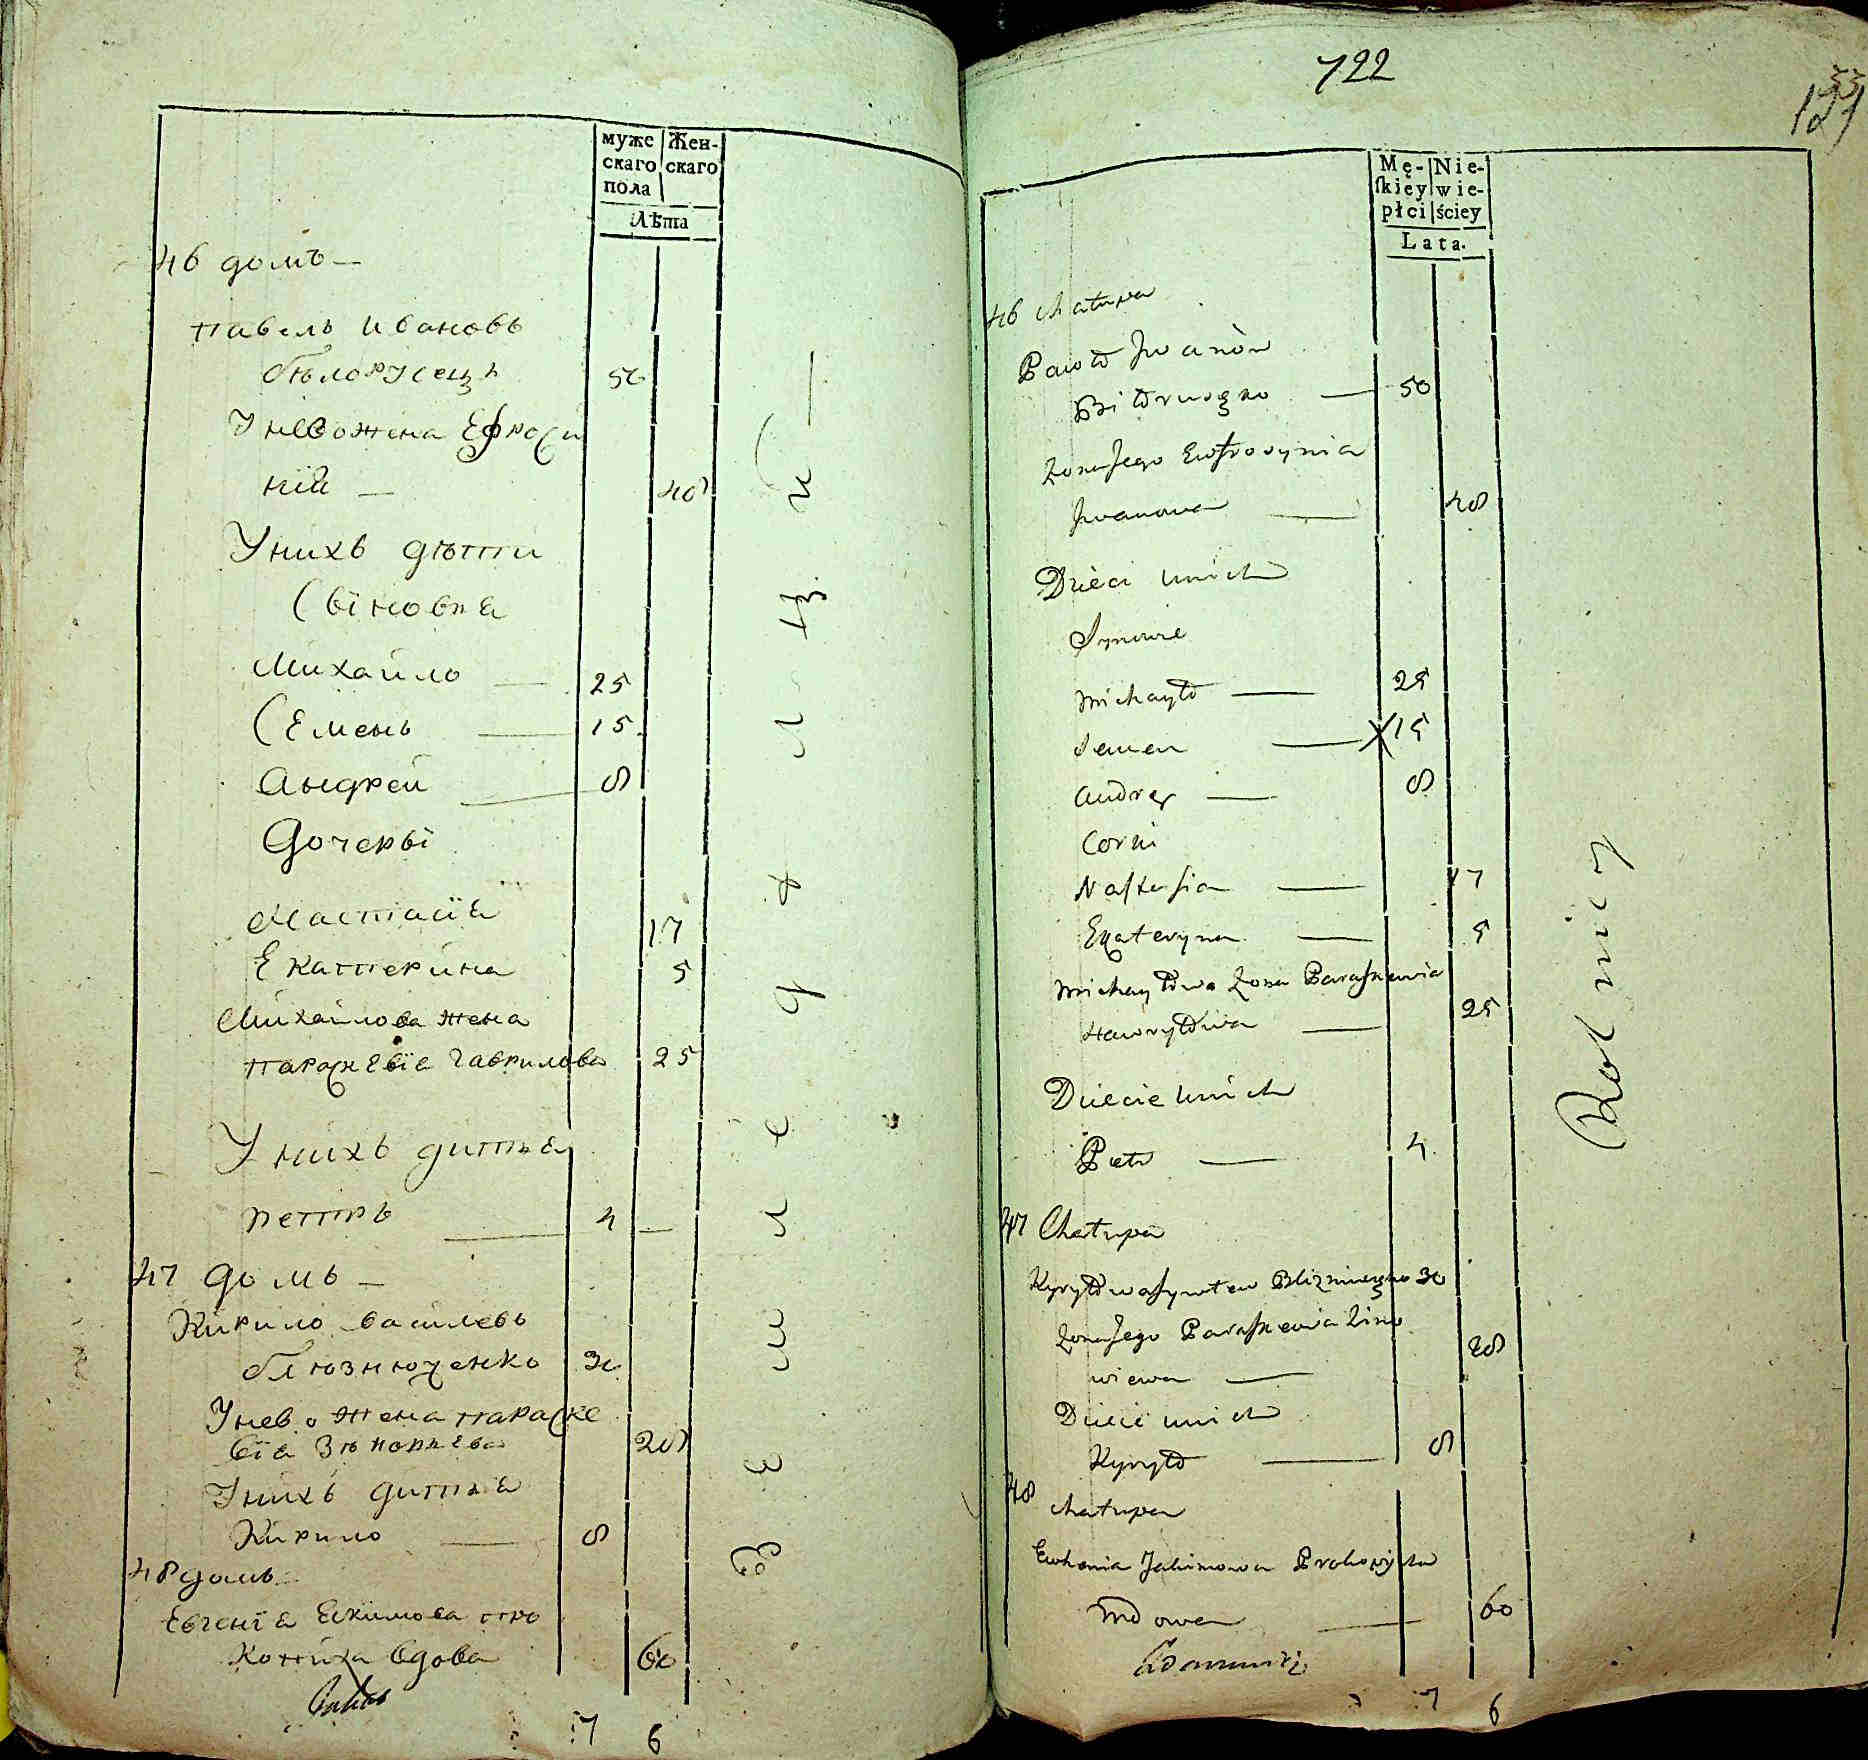 муже
скаго
пола
Жен-
скаго
Лѣта
46 домъ —
павелъ Ивановъ
бѣлорусецъ 50
У нево жена Ефроси
нія — 40
У нихъ дѣти
Сіновья
Михайло — 25
Семенъ — 15
Андрей — 8
Дочери
Настасія 17
Екатерина 5
Михайлова жена
параскевіа Гаврилова 25
У нихъ дитя
петръ — 4 —
47 домъ —
Кирило василевъ
блюзнюченко 30
У нево жена параске
віа Зѣновиева 28
У нихъ дитя
Кирило — 8
48 домъ
Евгеніа Екимова про
копиха вдова 60
7 6
Земледелцы
722
121
Mę-
skiey
płci
Nie-
wie-
ściey
Lata.
46 chałupa
Paweł Jwanów
Biłoruszko — 50
Zona Jego Ewfrosynia
Jwanowa — 48
Dzieci unich
Synowie
Michayło — 25
Semen — X 15
Andrey — 8
Corki
Nastasia — 17
Ekateryna — 5
Michayłowa Zona Paraskewia
Hawryłowa — 25
Dziecie unich
Piotr — 4
47 Chałupa
Kyryło wasylew Blizniuczenko 30
Zona Jego Paraskewia Zino
wiewa — 28
Dziecie unich
Kyryło — 8
48
chałupa
Ewhenia Jakimowa Prokopicha
Wdowa — 60
7 6
Rolnicy